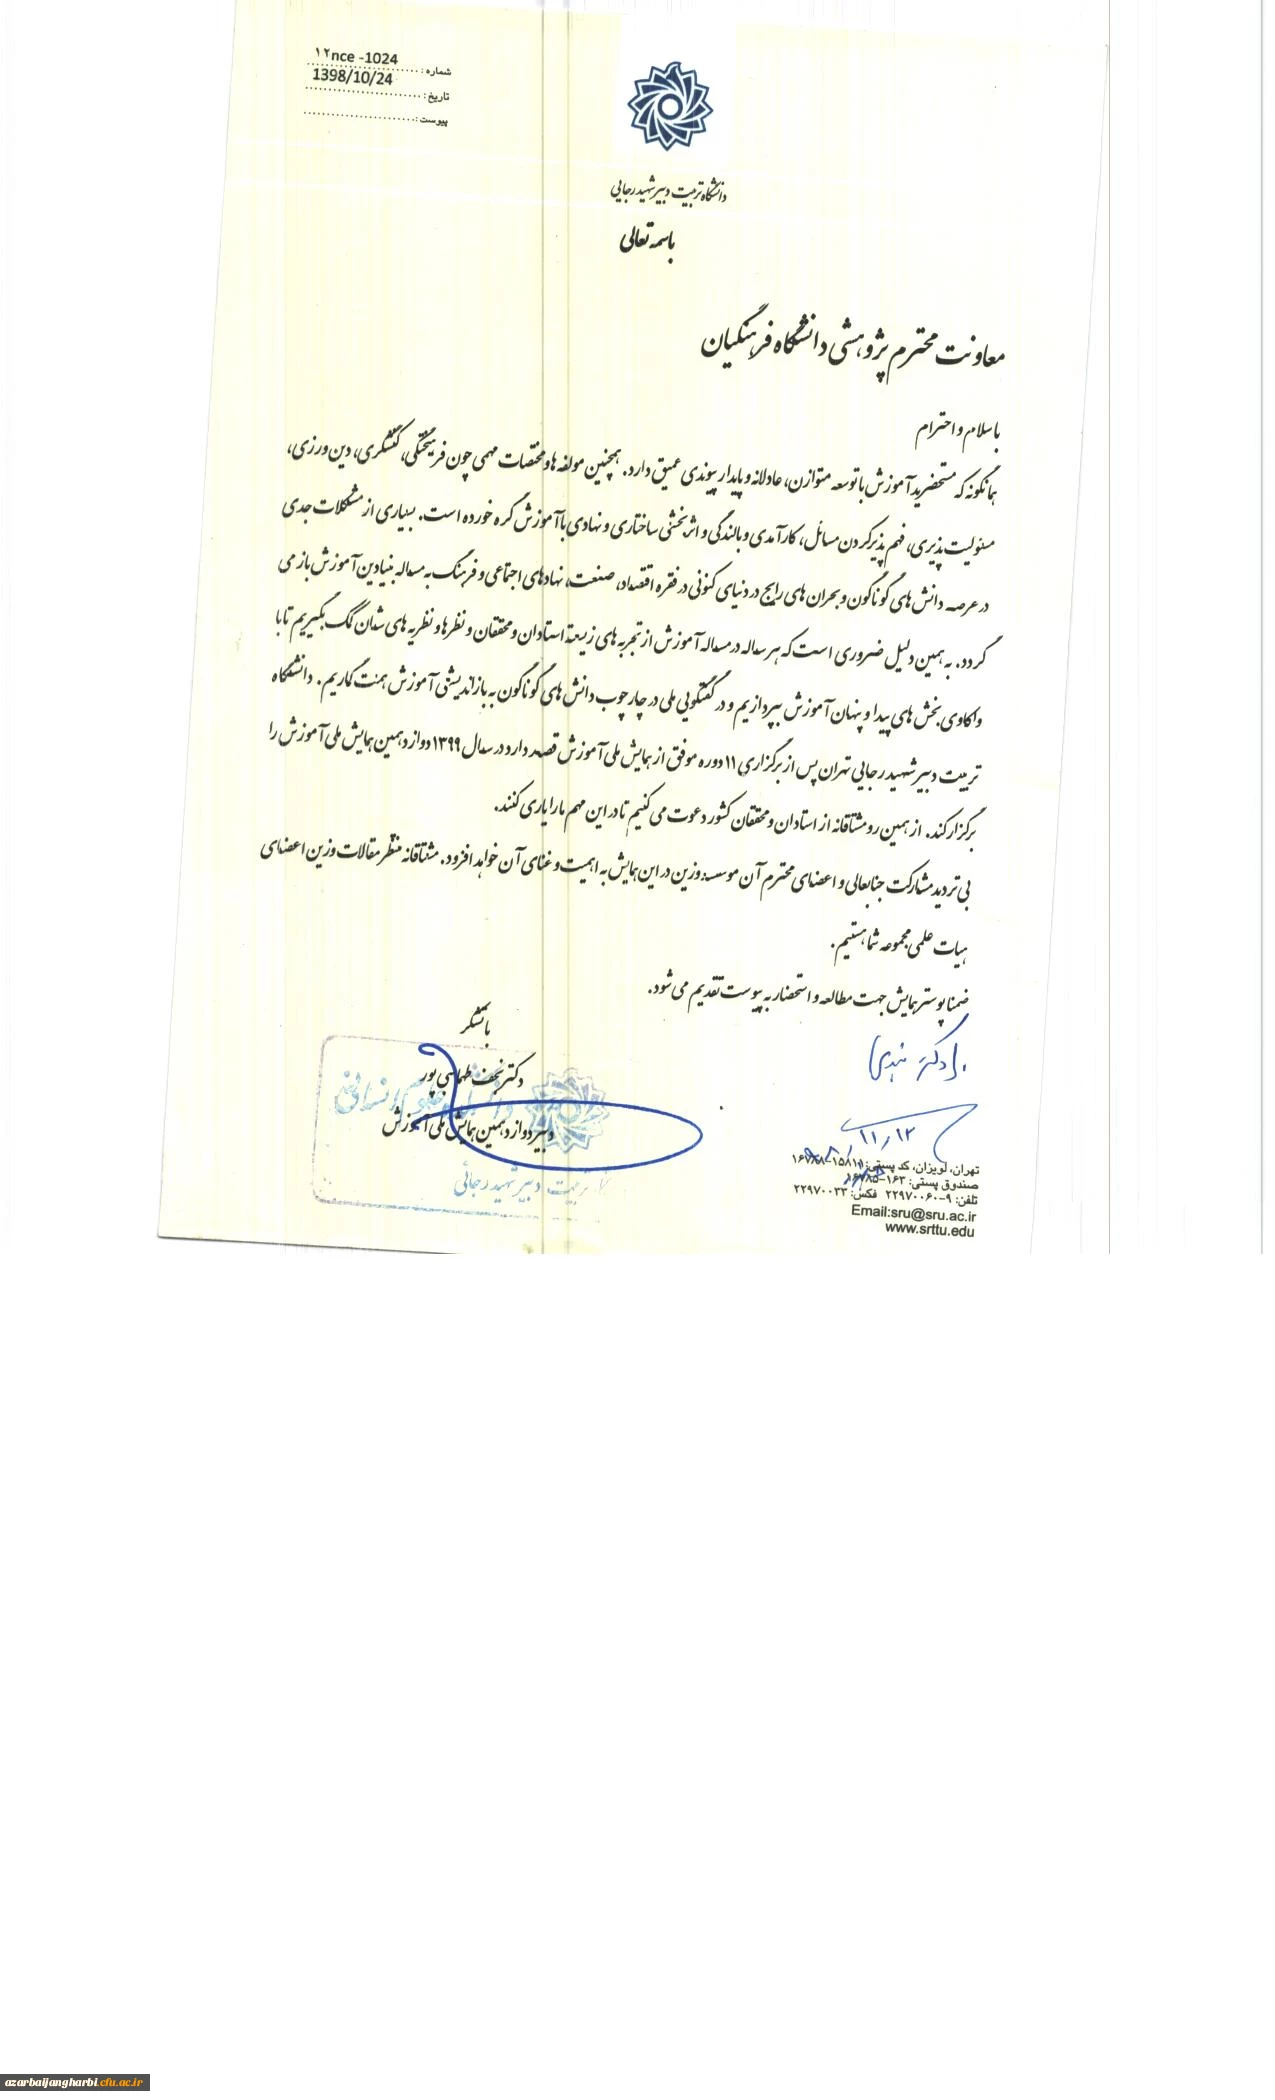 شماره: ۱۲nce -1024
تاریخ: 1398/10/24
پیوست:
دانشگاه تربیت دبیر شهید رجایی
باسمه تعالی
معاونت محترم پژوهشی دانشگاه فرهنگیان
با سلام و احترام
همانگونه که مستحضرید آموزش با توسعه متوازن، عادلانه و پایدار پیوندی عمیق دارد. همچنین مولفه ها و مختصات مهمی چون فرهیختگی، کنشگری، دین ورزی،
مسئولیت پذیری، فهم پذیر کردن مسائل، کارآمدی و بالندگی و اثربخشی ساختاری و نهادی با آموزش گره خورده است. بسیاری از مشکلات جدی
در عرصه دانش های گوناگون و بحران های رایج در دنیای کنونی در فقره اقتصاد، صنعت، نهادهای اجتماعی و فرهنگ به مساله بنیادین آموزش باز می
گردد. به همین دلیل ضروری است که هر ساله در مساله آموزش از تجربه های زیسته استادان و محققان و نظرها و نظریه های شان کمک بگیریم تا با
واکاوی بخش های پیدا و پنهان آموزش بپردازیم و در گفتگویی ملی در چارچوب دانش های گوناگون به بازاندیشی آموزش همت گماریم. دانشگاه
تربیت دبیر شهید رجایی تهران پس از برگزاری ۱۱ دوره موفق از همایش ملی آموزش قصد دارد در سال ۱۳۹۹ دوازدهمین همایش ملی آموزش را
برگزار کند. از همین رو مشتاقانه از استادان و محققان کشور دعوت می کنیم تا در این مهم ما را یاری کنند.
بی تردید مشارکت جنابعالی و اعضای محترم آن موسسه وزین در این همایش به اهمیت و غنای آن خواهد افزود. مشتاقانه منتظر مقالات وزین اعضای
هیات علمی مجموعه شما هستیم.
ضمنا پوستر همایش جهت مطالعه و استحضار به پیوست تقدیم می شود.
با تشکر
دکتر نجف طهماسبی پور
دبیر دوازدهمین همایش ملی آموزش
علوم انسانی
تربیت دبیر شهید رجائی
دکتر
۱۱/۱۲
تهران، لویزان، کد پستی: ۱۵۸۱۱-۱۶۷۸۸
صندوق پستی: ۱۶۳-۱۶۷۸۵
تلفن: ۹-۲۲۹۷۰۰۶۰ فکس: ۲۲۹۷۰۰۳۳
Email:sru@sru.ac.ir
www.srttu.edu
azarbaijangharbi.cfu.ac.ir